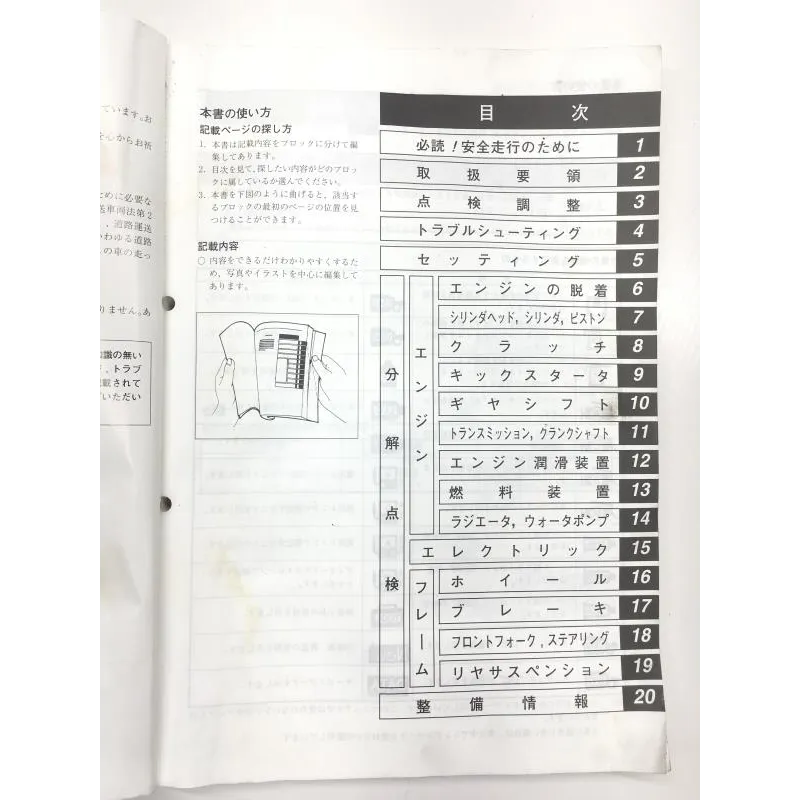 ています。お
を心からお祈
ために必要な
送車両法第2
、道路運送
いわゆる道路
この車の走っ
りません。あ
知識の無い
、トラブ
載されて
いただい
本書の使い方
記載ページの探し方
1. 本書は記載内容をブロックに分けて編
集してあります。
2. 目次を見て、探したい内容がどのブロッ
クに属しているか選んでください。
3. 本書を下図のように曲げると、該当す
るブロックの最初のページの位置を見
つけることができます。
記載内容
○ 内容をできるだけわかりやすくするた
め、写真やイラストを中心に編集して
あります。
目次
必読！安全走行のために 1
取扱要領 2
点検調整 3
トラブルシューティング 4
セッティング 5
分解点検
エンジン
エンジンの脱着 6
シリンダヘッド, シリンダ, ピストン 7
クラッチ 8
キックスタータ 9
ギヤシフト 10
トランスミッション, クランクシャフト 11
エンジン潤滑装置 12
燃料装置 13
ラジエータ, ウォータポンプ 14
エレクトリック 15
フレーム
ホイール 16
ブレーキ 17
フロントフォーク, ステアリング 18
リヤサスペンション 19
整備情報 20